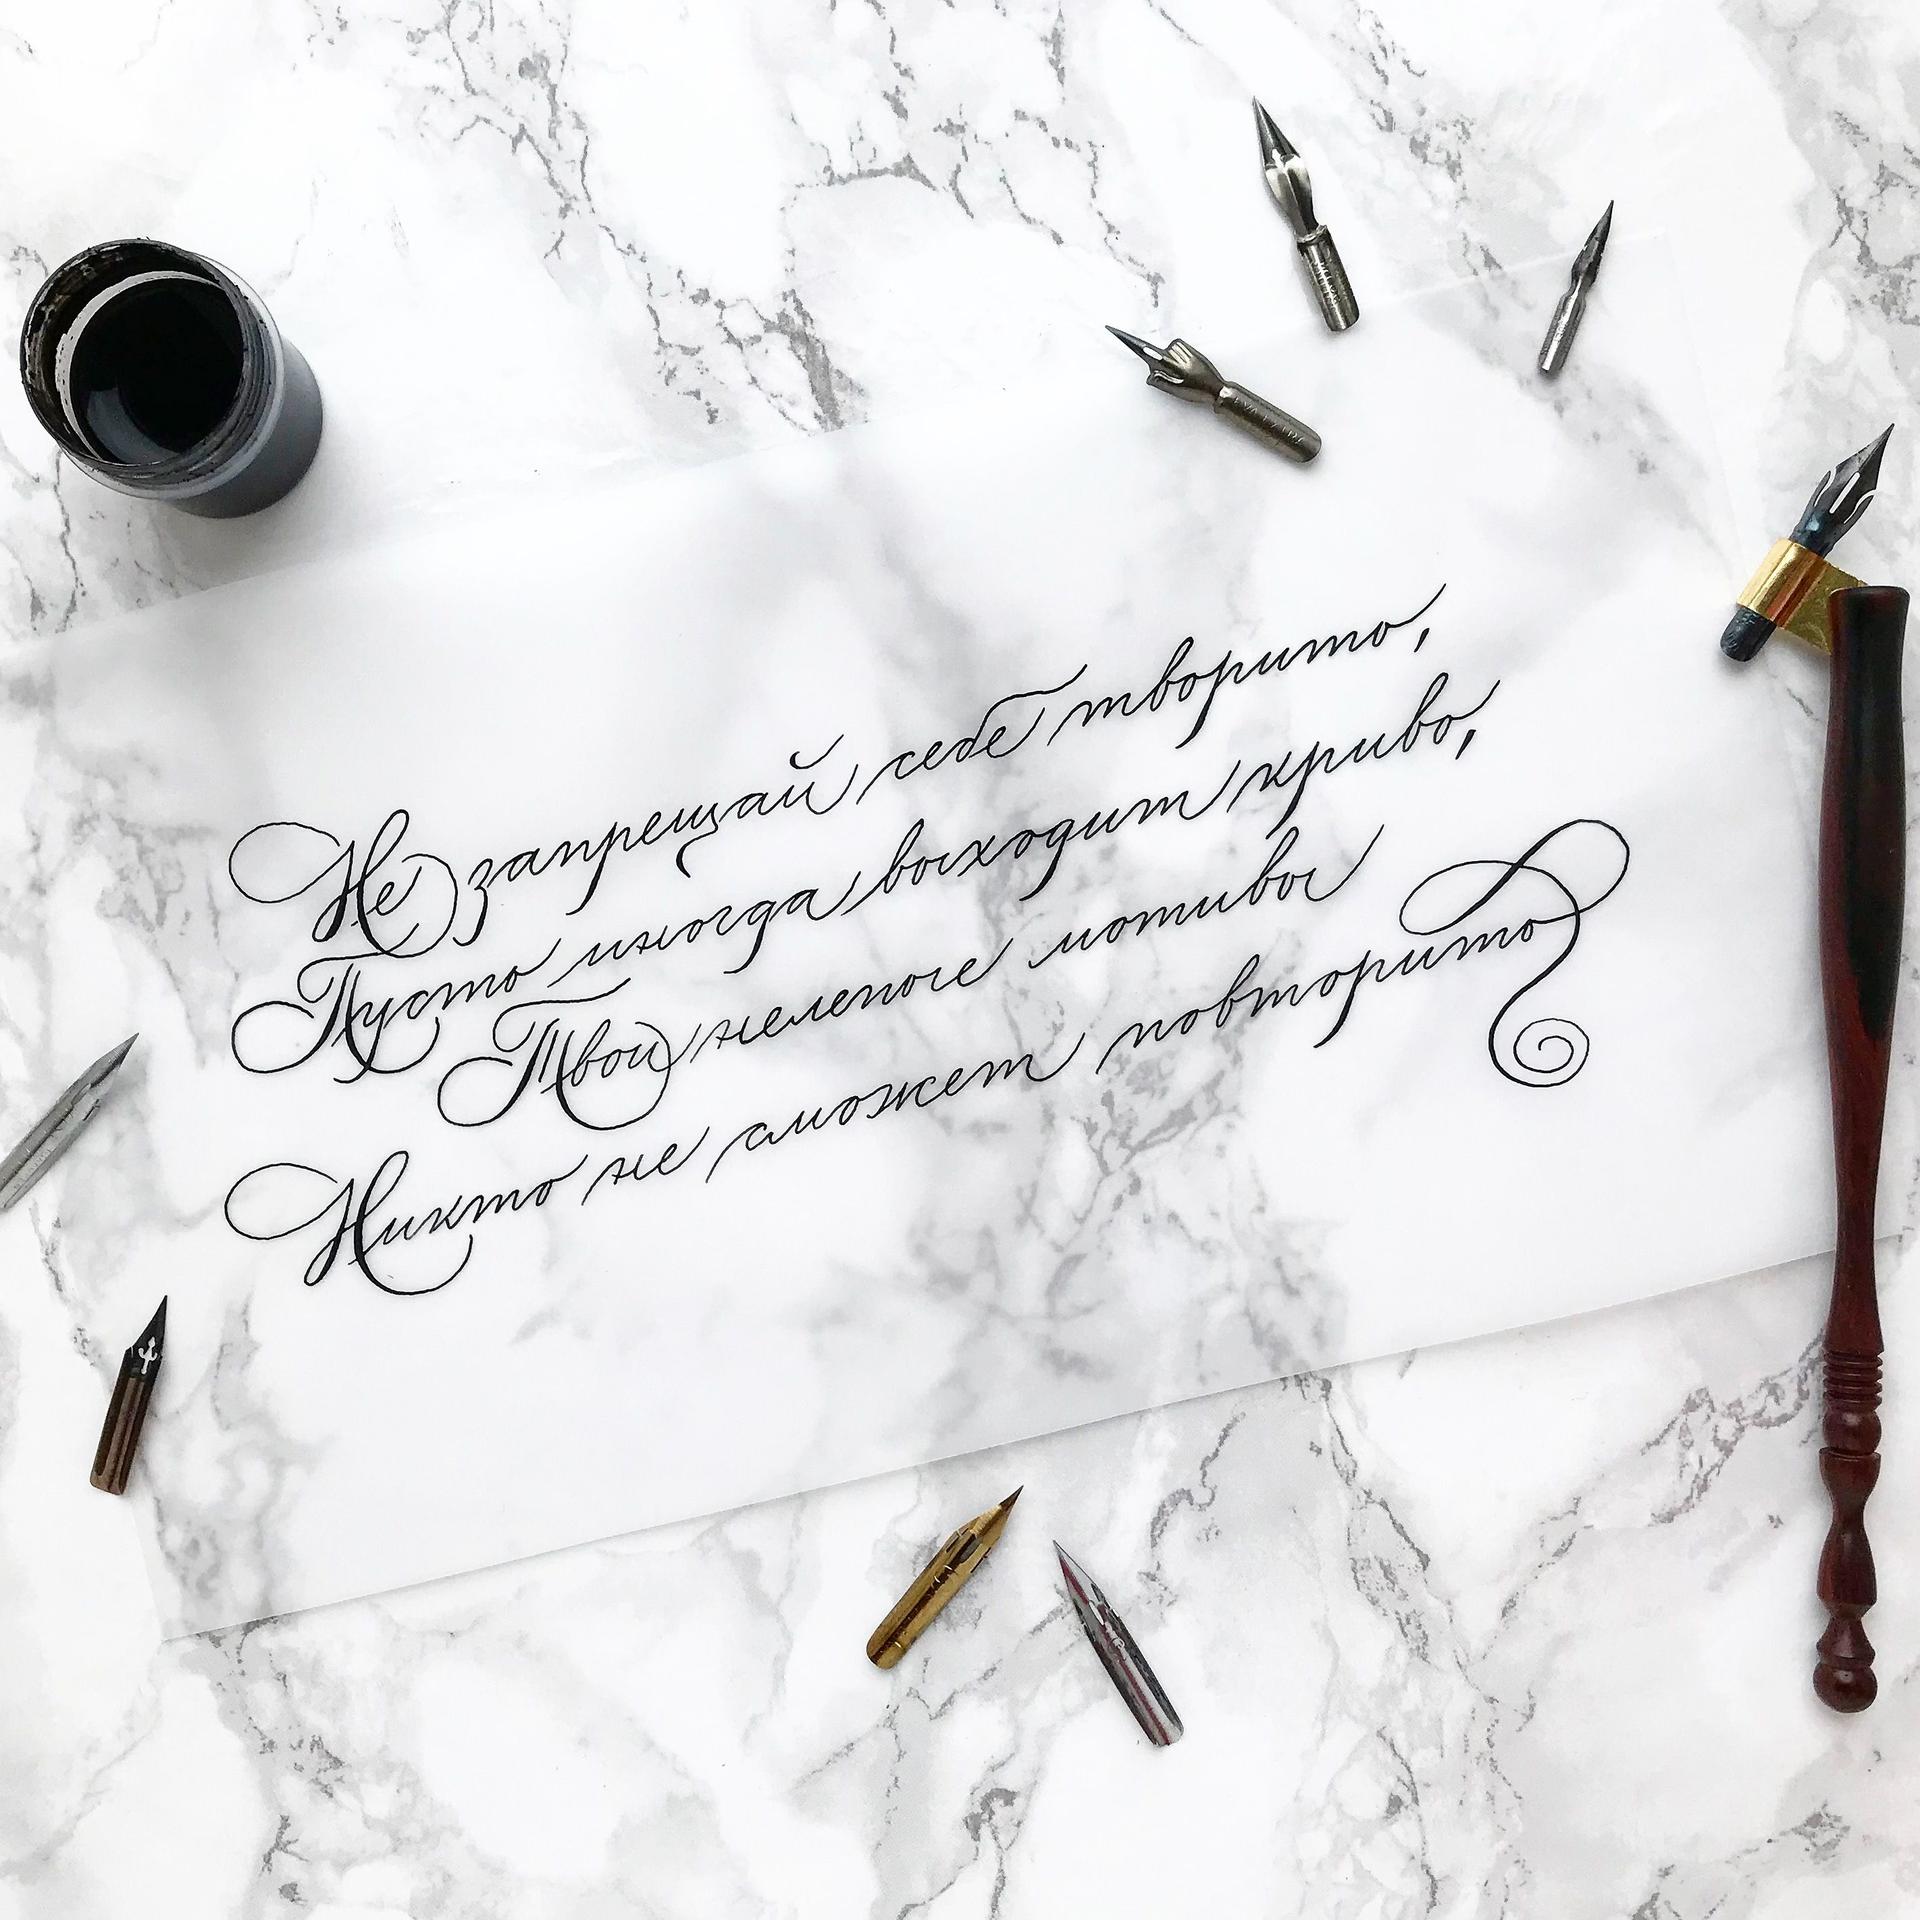 Не запрещай себе творить,
Пусть иногда выходит криво,
Твои нелепые мотивы
Никто не сможет повторить